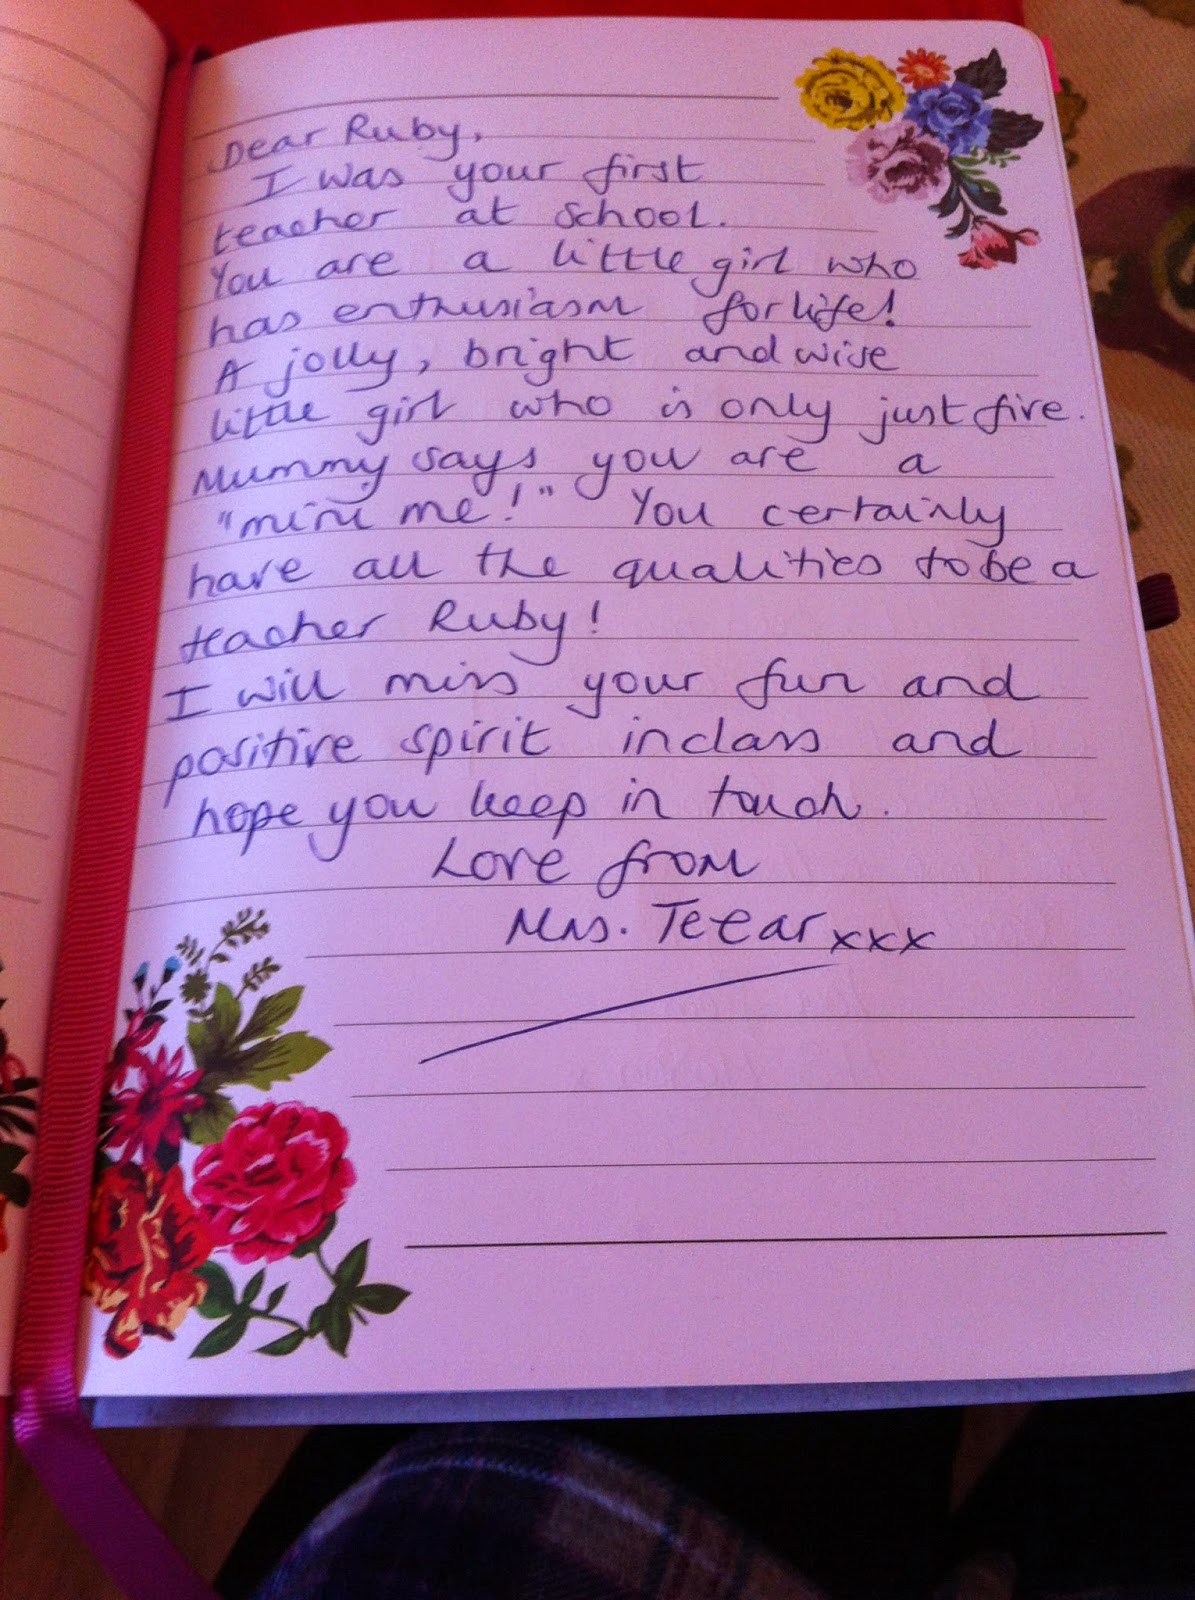 Dear Ruby,
I was your first
teacher at school.
You are a little girl who
has enthusiasm for life!
A jolly, bright and wise
little girl who is only just five.
Mummy says you are a
"mini me!" You certainly
have all the qualities to be a
teacher Ruby!
I will miss your fun and
positive spirit in class and
hope you keep in touch.
Love from
Mrs. Teear xxx